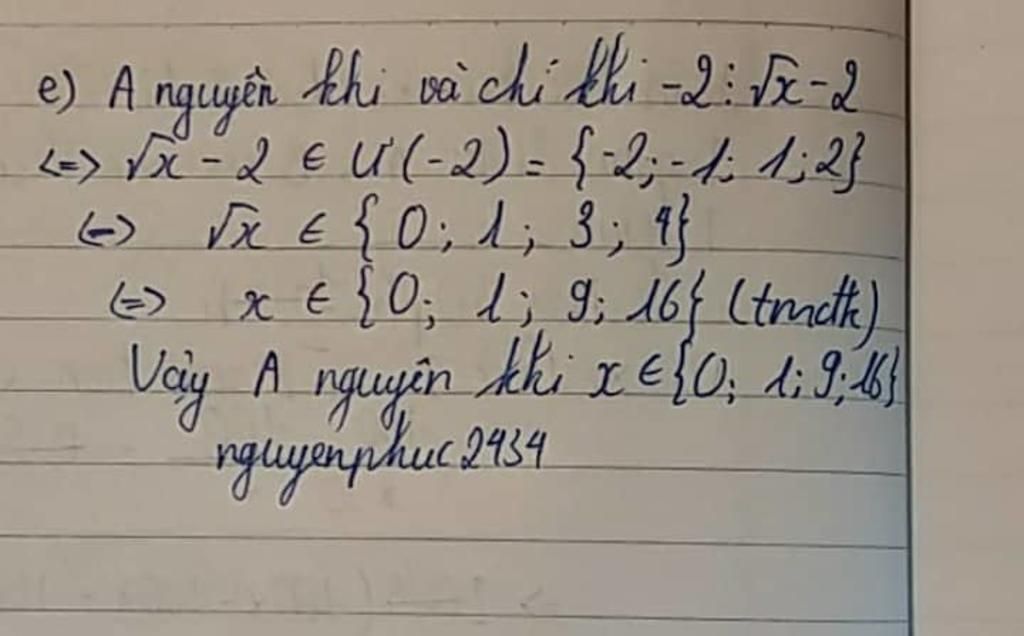 e) A nguyên khi và chỉ khi -2 ⋮ √x - 2
<=> √x - 2 ∈ Ư(-2) = {-2; -1; 1; 2}
<=> √x ∈ {0; 1; 3; 4}
<=> x ∈ {0; 1; 9; 16} (tmđk)
Vậy A nguyên khi x ∈ {0; 1; 9; 16}
nguyenphuc2434